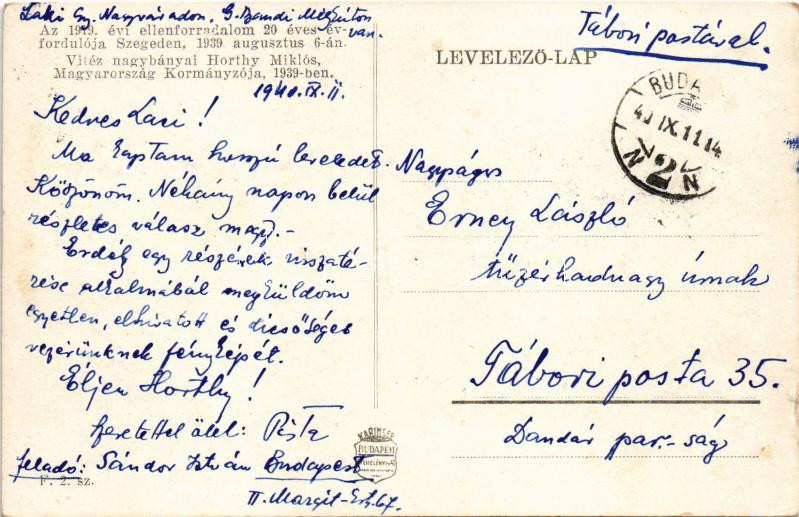 Laki Gy. Nagyváradon, G. Bandi Mezőúton
van.
Az 1919. évi ellenforradalom 20 éves év-
fordulója Szegeden, 1939 augusztus 6-án.
Vitéz nagybányai Horthy Miklós,
Magyarország Kormányzója, 1939-ben.
1940. IX. 11.
Kedves Laci!
Ma kaptam hosszú leveledet.
Köszönöm. Néhány napon belül
részletes válasz megy.-
Erdély egy részének visszaté-
rése alkalmából megküldöm
egyetlen, elhivatott és dicsőséges
vezérünknek fényképét.
Éljen Horthy!
szeretettel ölel: Pista
feladó: Sándor István Budapest
F. 2. sz.
II. Margit-krt. 67.
KARINGER
BUDAPEST
Tábori postával.
LEVELEZŐ-LAP
BUDA
40 IX. 11 14
2
N N
Nagyságos
Erney László
tüzérhadnagy úrnak
Tábori posta 35.
Dandár par.-ság